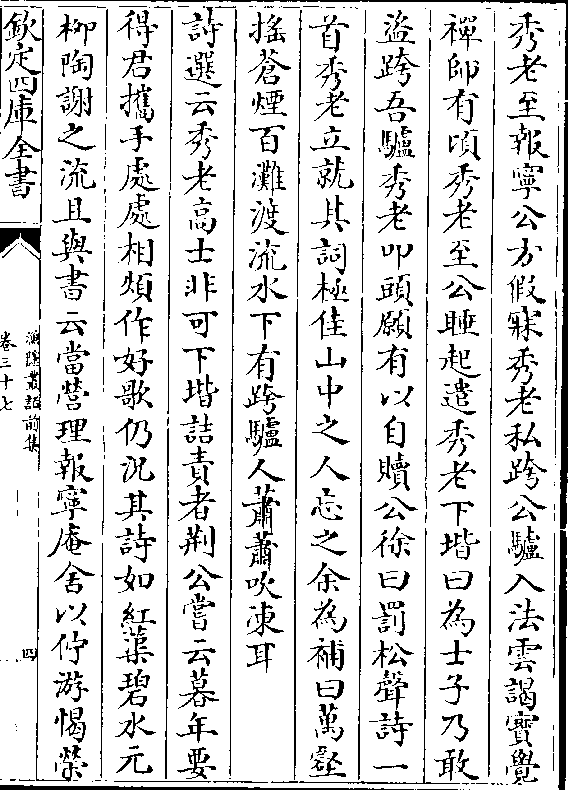 秀老至報寧公方假寐秀老私跨公驢入法雲謁寶覺
禪師有頃秀老至公睡起遣秀老下堦曰為士子乃敢
盜跨吾驢秀老叩頭願有以自贖公徐曰罰松聲詩一
首秀老立就其詞極佳山中之人忘之余為補曰萬壑
搖蒼煙百灘渡流水下有跨驢人蕭蕭吹凍耳
詩選云秀老高士非可下堦詰責者荆公嘗云暮年要
得君攜手處處相煩作好歌仍況其詩如紅蕖碧水元
柳陶謝之流且與書云當營理報寧庵舍以佇游愒榮
欽定四庫全書
漁隱叢話前集
卷三十七
四